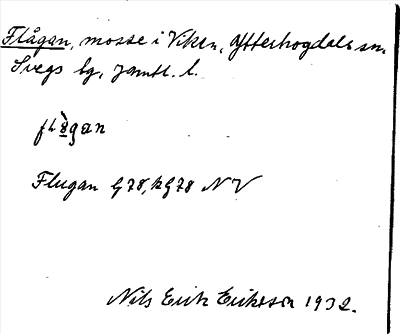 Flågan, mosse i Viken, Ytterhogdals sn.
Svegs tg, Jämtl. l.
Flugan G78, kG78 NV
Nils Erik Eriksson 1932.